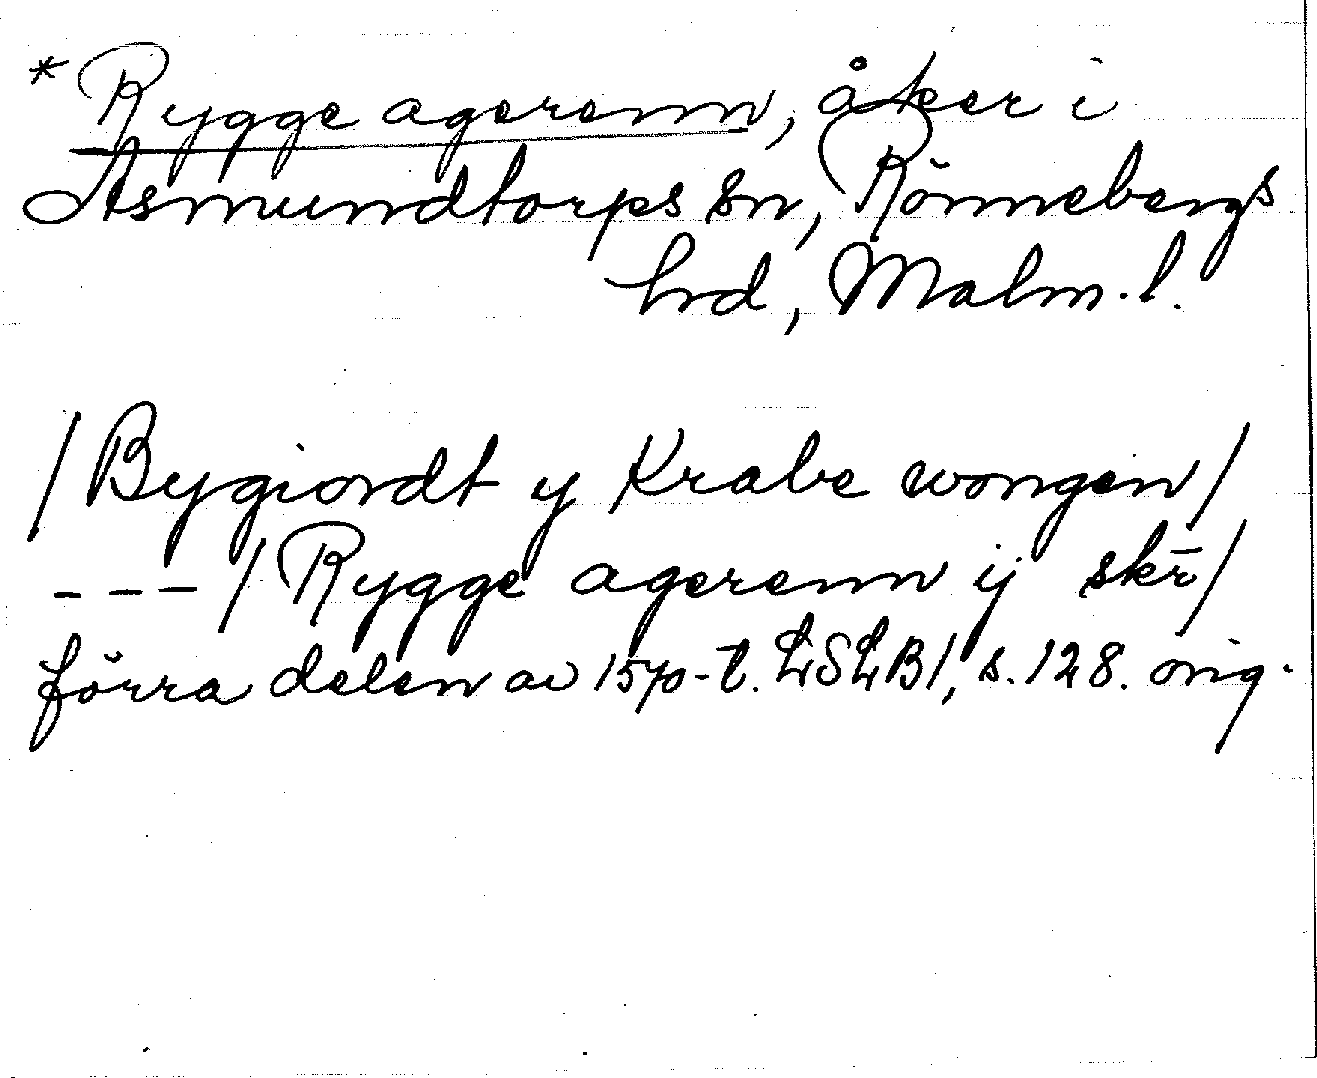 * Rygge agerenn, åker i
Asmundtorps sn, Rönnebergs
hrd, Malm. l.
/Bygiordt y Krabe wongen/
--- /Rygge agerenn ij skr̄/
förra delen av 1570-t. LSLB1, s. 128. orig.